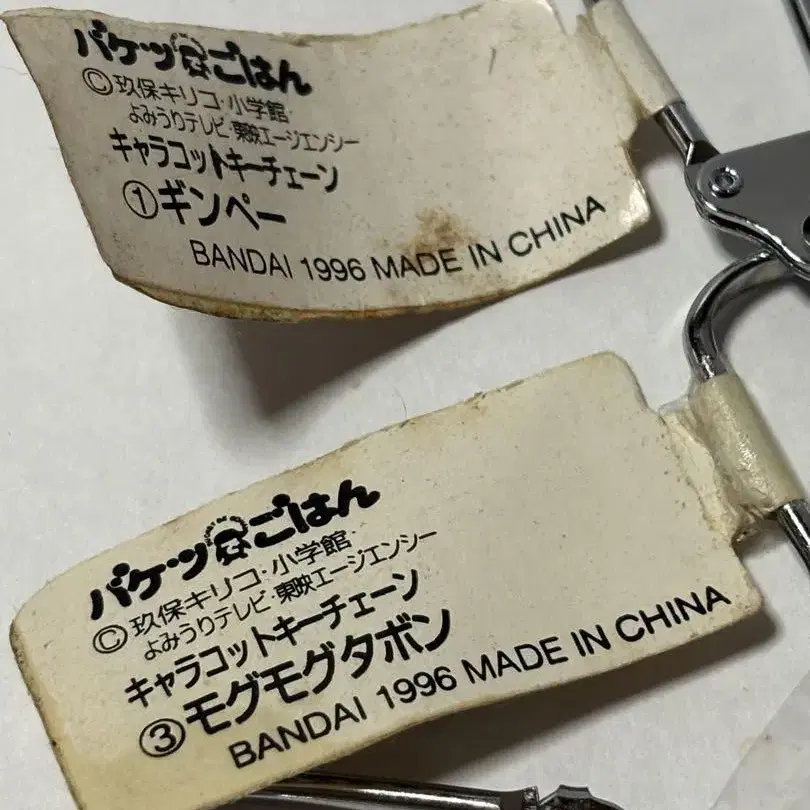 バケツでごはん
©玖保キリコ・小学館・
よみうりテレビ・東映エージエンシー
キャラコットキーチェーン
①ギンペー
BANDAI 1996 MADE IN CHINA
バケツでごはん
©玖保キリコ・小学館・
よみうりテレビ・東映エージエンシー
キャラコットキーチェーン
③モグモグタボン
BANDAI 1996 MADE IN CHINA